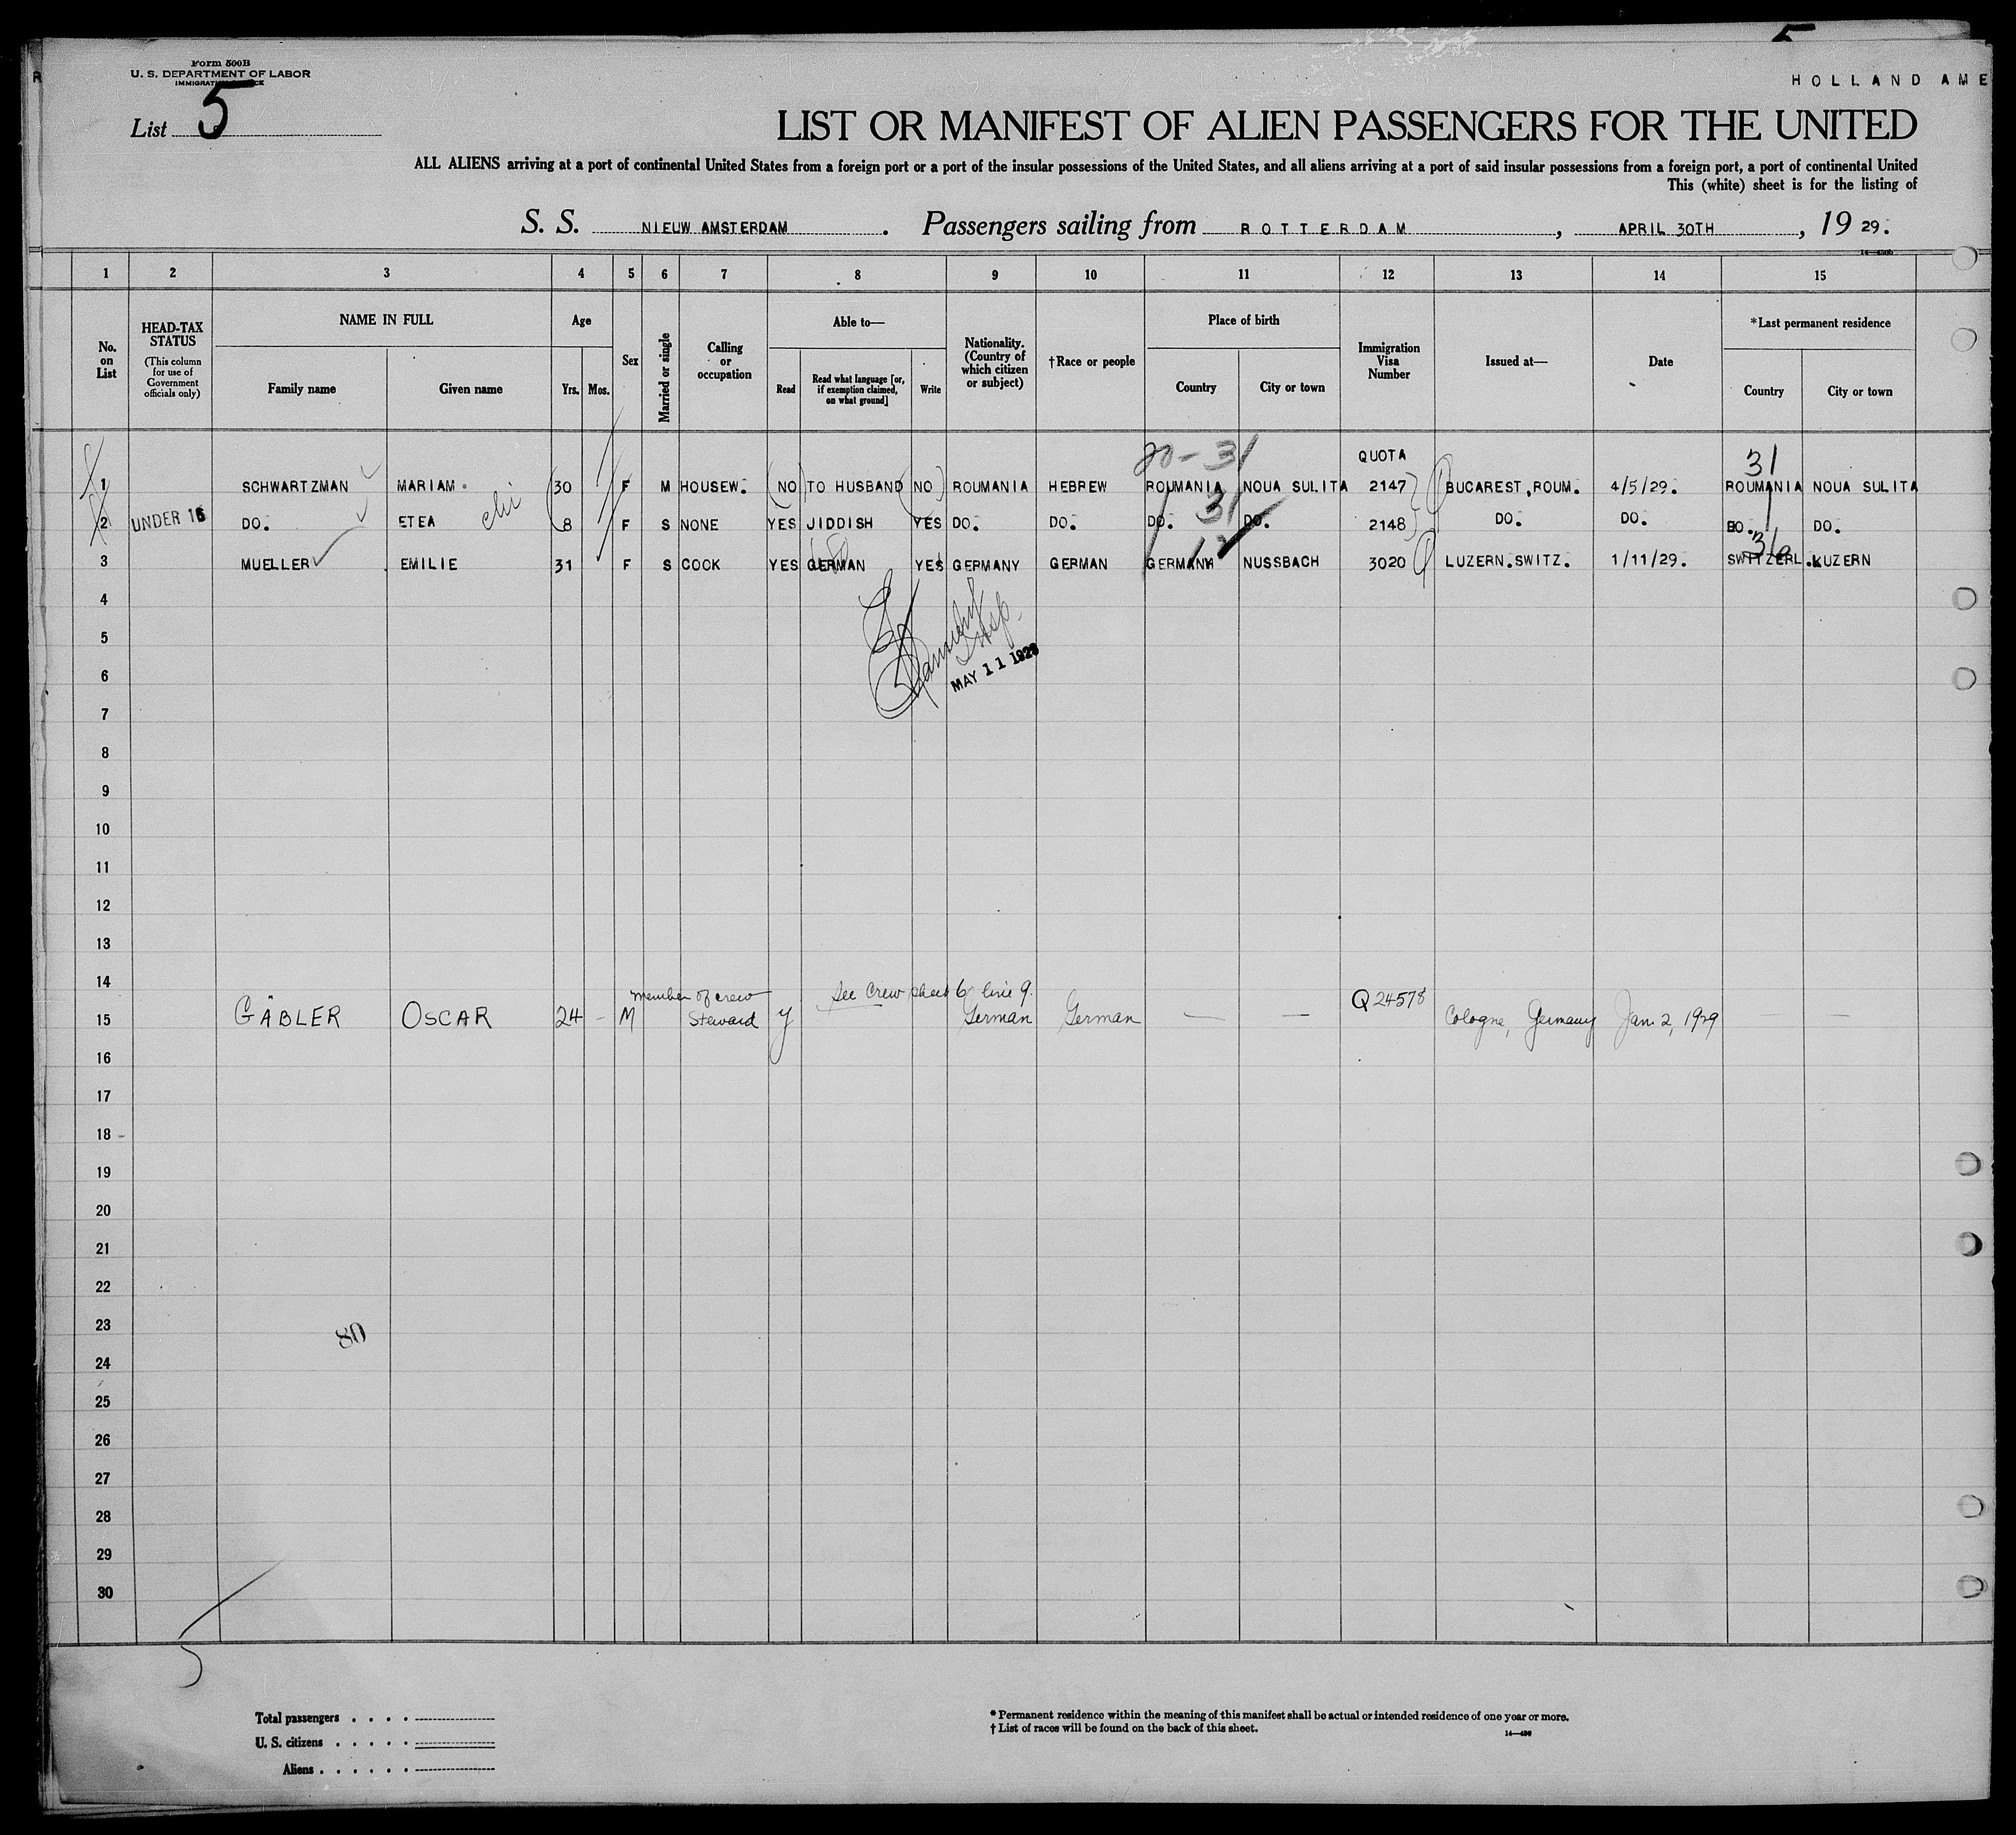 5
Form 500B
U. S. DEPARTMENT OF LABOR
HOLLAND AME
List 5
LIST OR MANIFEST OF ALIEN PASSENGERS FOR THE UNITED
ALL ALIENS arriving at a port of continental United States from a foreign port or a port of the insular possessions of the United States, and all aliens arriving at a port of said insular possessions from a foreign port, a port of continental United
This (white) sheet is for the listing of
S. S. NIEUW AMSTERDAM. Passengers sailing from ROTTERDAM, APRIL 30TH, 19 29.
1 2 3 4 5 6 7 8 9 10 11 12 13 14 15
No. on List
HEAD-TAX STATUS (This column for use of Government officials only)
NAME IN FULL
Family name Given name
Age
Yrs. Mos.
Sex
Married or single
Calling or occupation
Able to—
Read Read what language [or, if exemption claimed, on what ground] Write
Nationality. (Country of which citizen or subject)
†Race or people
Place of birth
Country City or town
Immigration Visa Number
Issued at—
Date
*Last permanent residence
Country City or town
20-31 QUOTA 31
1 SCHWARTZMAN MARIAM 30 F M HOUSEW. NO TO HUSBAND NO ROUMANIA HEBREW ROUMANIA NOUA SULITA 2147 BUCAREST,ROUM. 4/5/29. ROUMANIA NOUA SULITA
2 UNDER 16 DO. ETEA 8 F S NONE YES JIDDISH YES DO. DO. DO. 31 DO. 2148 DO. DO. DO. DO.
3 MUELLER EMILIE 31 F S COOK YES GERMAN YES GERMANY GERMAN GERMANY NUSSBACH 3020 LUZERN.SWITZ. 1/11/29. SWITZERL. KUZERN
4
5
Insp.
6
MAY 11 1929
7
8
9
10
11
12
13
14
member of crew See Crew sheet 6 line 9. Q 24578
15 GÄBLER OSCAR 24 – M Steward y German German — — Cologne, Germany Jan. 2, 1929 —
16
17
18
19
20
21
22
23
80
24
25
26
27
28
29
30
5
Total passengers
U. S. citizens
Aliens
* Permanent residence within the meaning of this manifest shall be actual or intended residence of one year or more.
† List of races will be found on the back of this sheet.